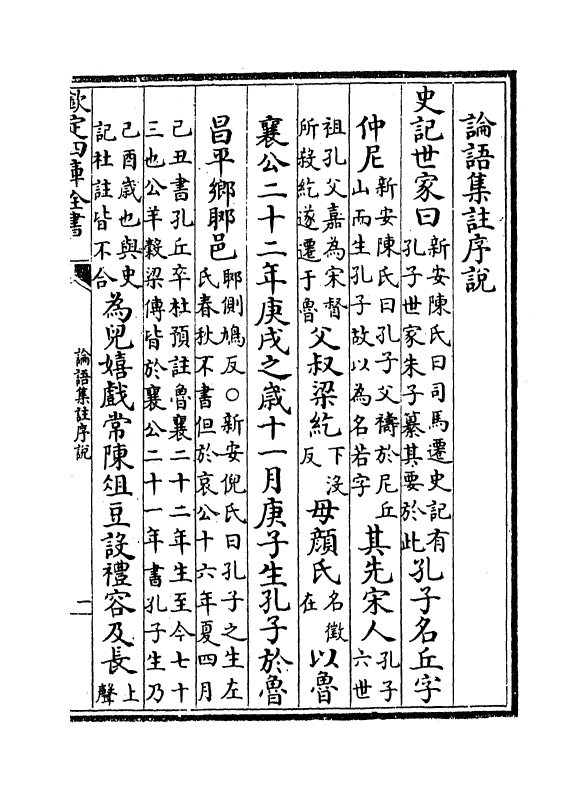 論語集註序說
史記世家曰新安陳氏曰司馬遷史記有孔子世家朱子纂其要於此孔子名丘字
仲尼新安陳氏曰孔子父禱於尼丘山而生孔子故以為名若字其先宋人孔子六世
祖孔父嘉為宋督所殺紇遂遷于魯父叔梁紇下沒反母顔氏名徵在以魯
襄公二十二年庚戌之歲十一月庚子生孔子於魯
昌平鄉郰邑郰側鳩反○新安倪氏曰孔子之生左氏春秋不書但於哀公十六年夏四月
己丑書孔丘卒杜預註魯襄二十二年生至今七十三也公羊穀梁傳皆於襄公二十一年書孔子生乃
己酉歲也與史記社註皆不合為兒嬉戲常陳俎豆設禮容及長上聲
欽定四庫全書
論語集註序說
一